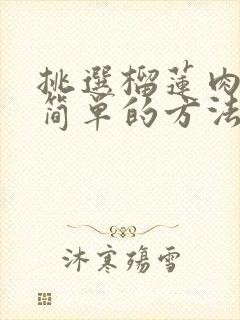 挑選榴蓮肉
簡單的方法
沐寒殤雪